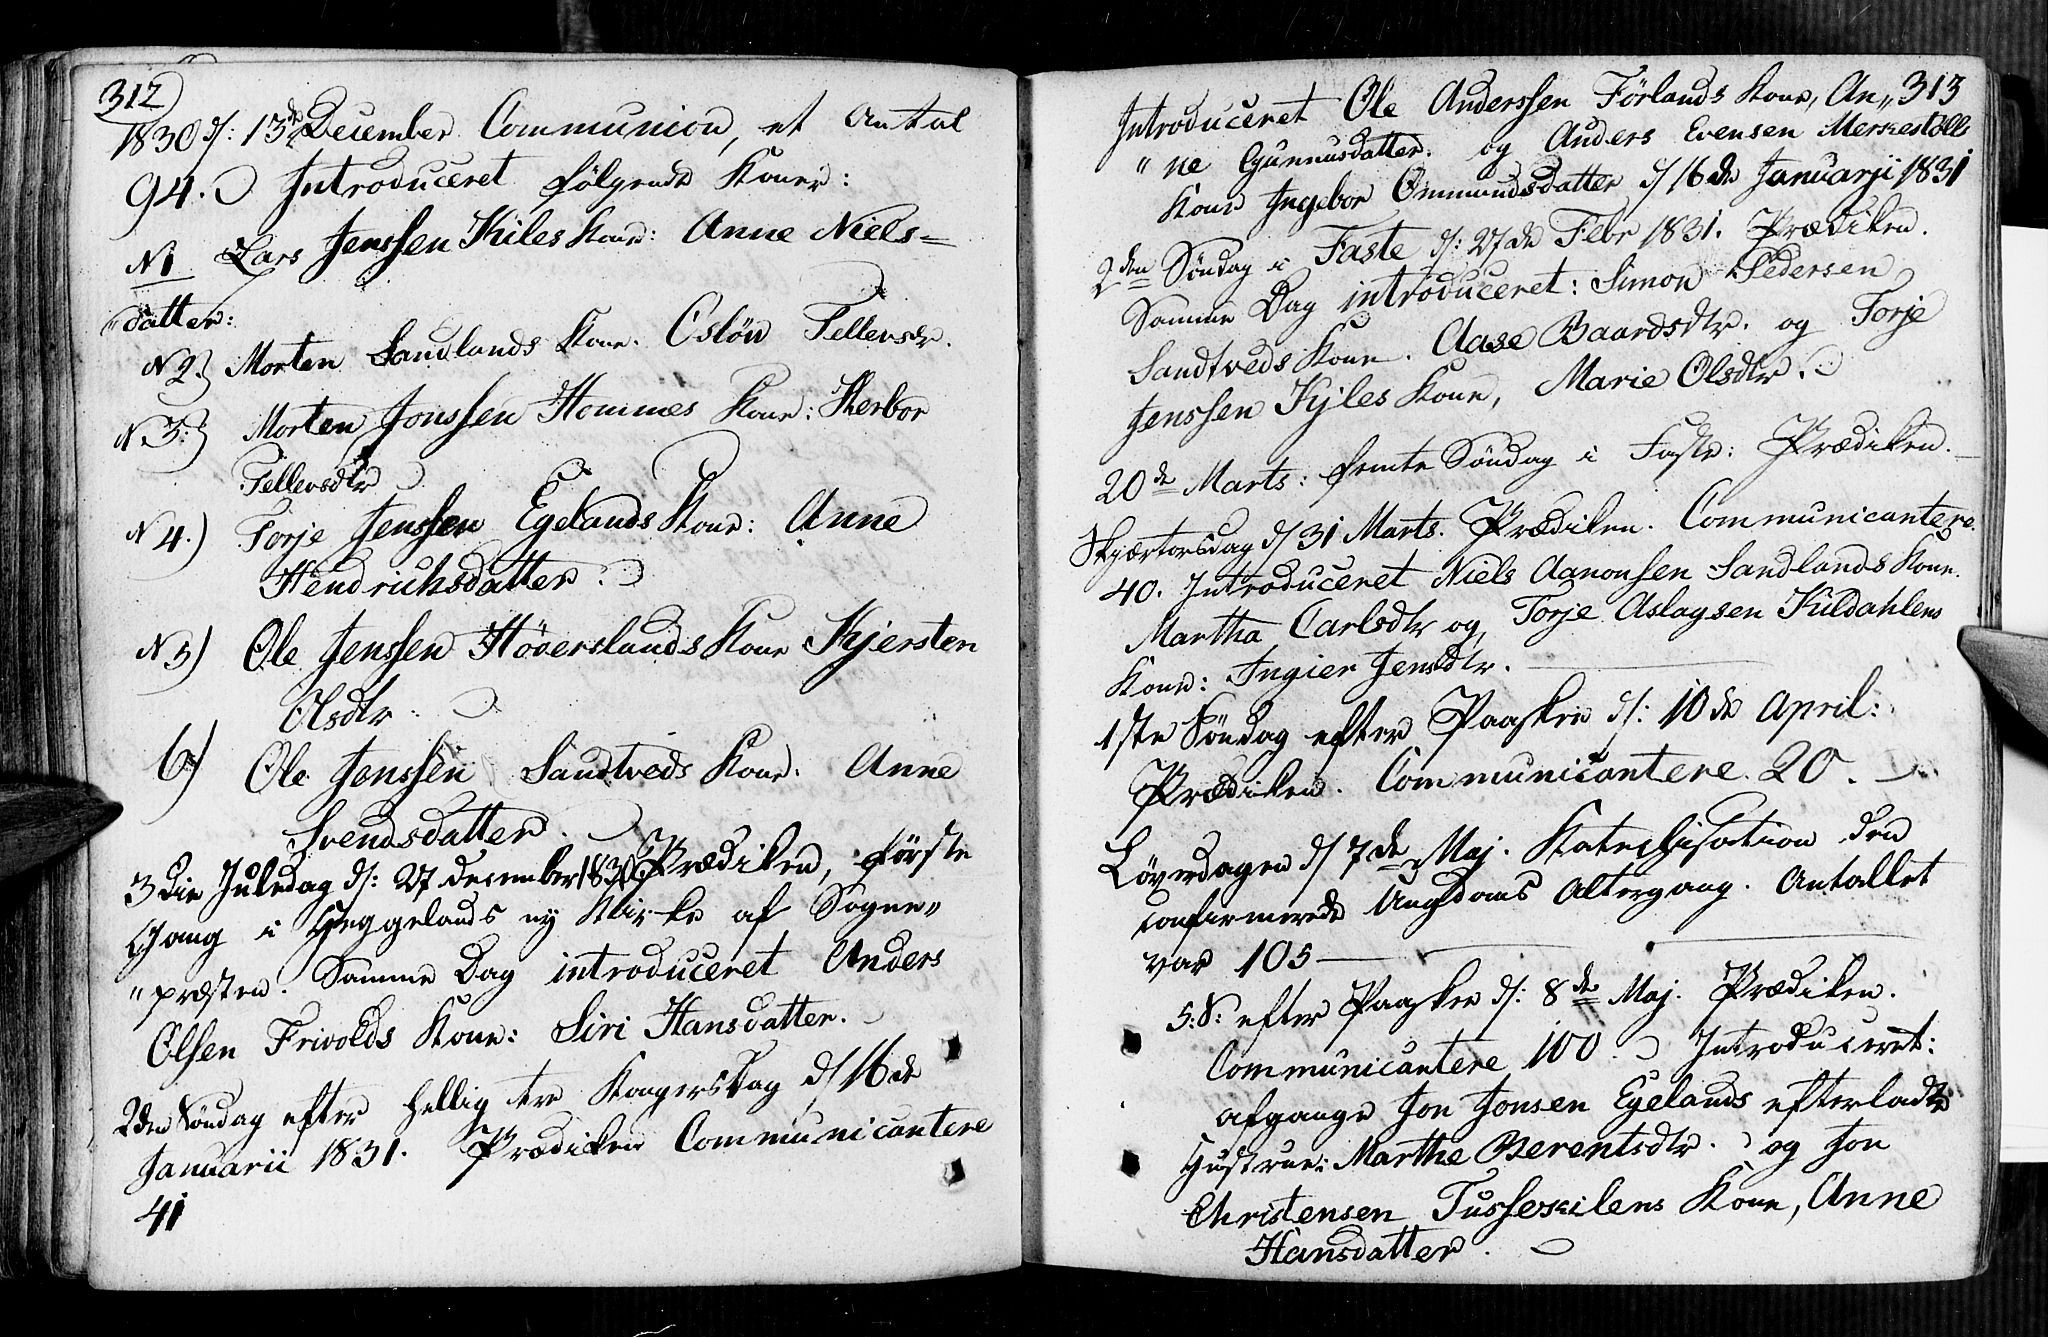 312
1830 d: 13de December Communion, et Antal
94. Introduceret følgende Koner:
N1 Lars Jenssen Kiles Kone: Anne Niels=
"datter:
N 2.) Morten Sandlands Kone. Osløv Tellevsdr.
N. 3:) Morten Jonssen Hommes Kone: Herbor
Tellevsdtr
N 4.) Torje Jenssen Egelands Kone: Anne
Hendrichsdatter.
N 5) Ole Jenssen Høverslands Kone Kjersten
Olsdtr.
6) Ole Jenssen Sandtveds Kone. Anne
Svendsdatter.
3die Juledag d: 27 december 1830 Prædiken, første
Gang i Heggelands ny Kirke af Sogne"
"præsten. Samme Dag introduceret Anders
Olsen Frivolds Kone: Siri Hansdatter.
2den Søndag efter hellig tre Kongersdag d/ 16de
Januarii 1831. Prædiken Communicantere
41
313
Introduceret Ole Anderssen Førlands Kone, An"
"ne Gunnusdatter. og Anders Evensen Merkestølls
Kone Ingebor Ommundsdatter d/ 16de Januarji 1831
2den Søndag i Faste d: 27de Febr 1831. Prædiken.
Samme Dag introduceret: Simon Pedersen
Sandtveds Kone. Aase Baardsdtr. og Torje
Jenssen Kjles Kone, Marie Olsdtr.
20de Marts: femte Søndag i Faste: Prædiken.
Skjærtorsdag d/ 31 Marts. Prædiken. Communicantere
40. Introduceret Niels Aanonsen Sandlands Kone.
Martha Carlsdtr og Torje Aslagsen Kildahlens
Kone: Ingier Jensdtr.
1ste Søndag efter Paaske d: 10de April:
Prædiken. Communicantere 20.
Løverdagen d/ 7de Maj. Katechisation den
confirmerede Ungdoms Altergang. Antallet
var 105
5: S: efter Paaske d: 8de Maj. Prædiken.
Communicantere 100. Introduceret:
afgangne Jon Jonsen Egelands efterladte
Hustrue: Marthe Berentsdtr. og Jon
Christensen Tusseskilens Kone, Anne
Hansdatter.